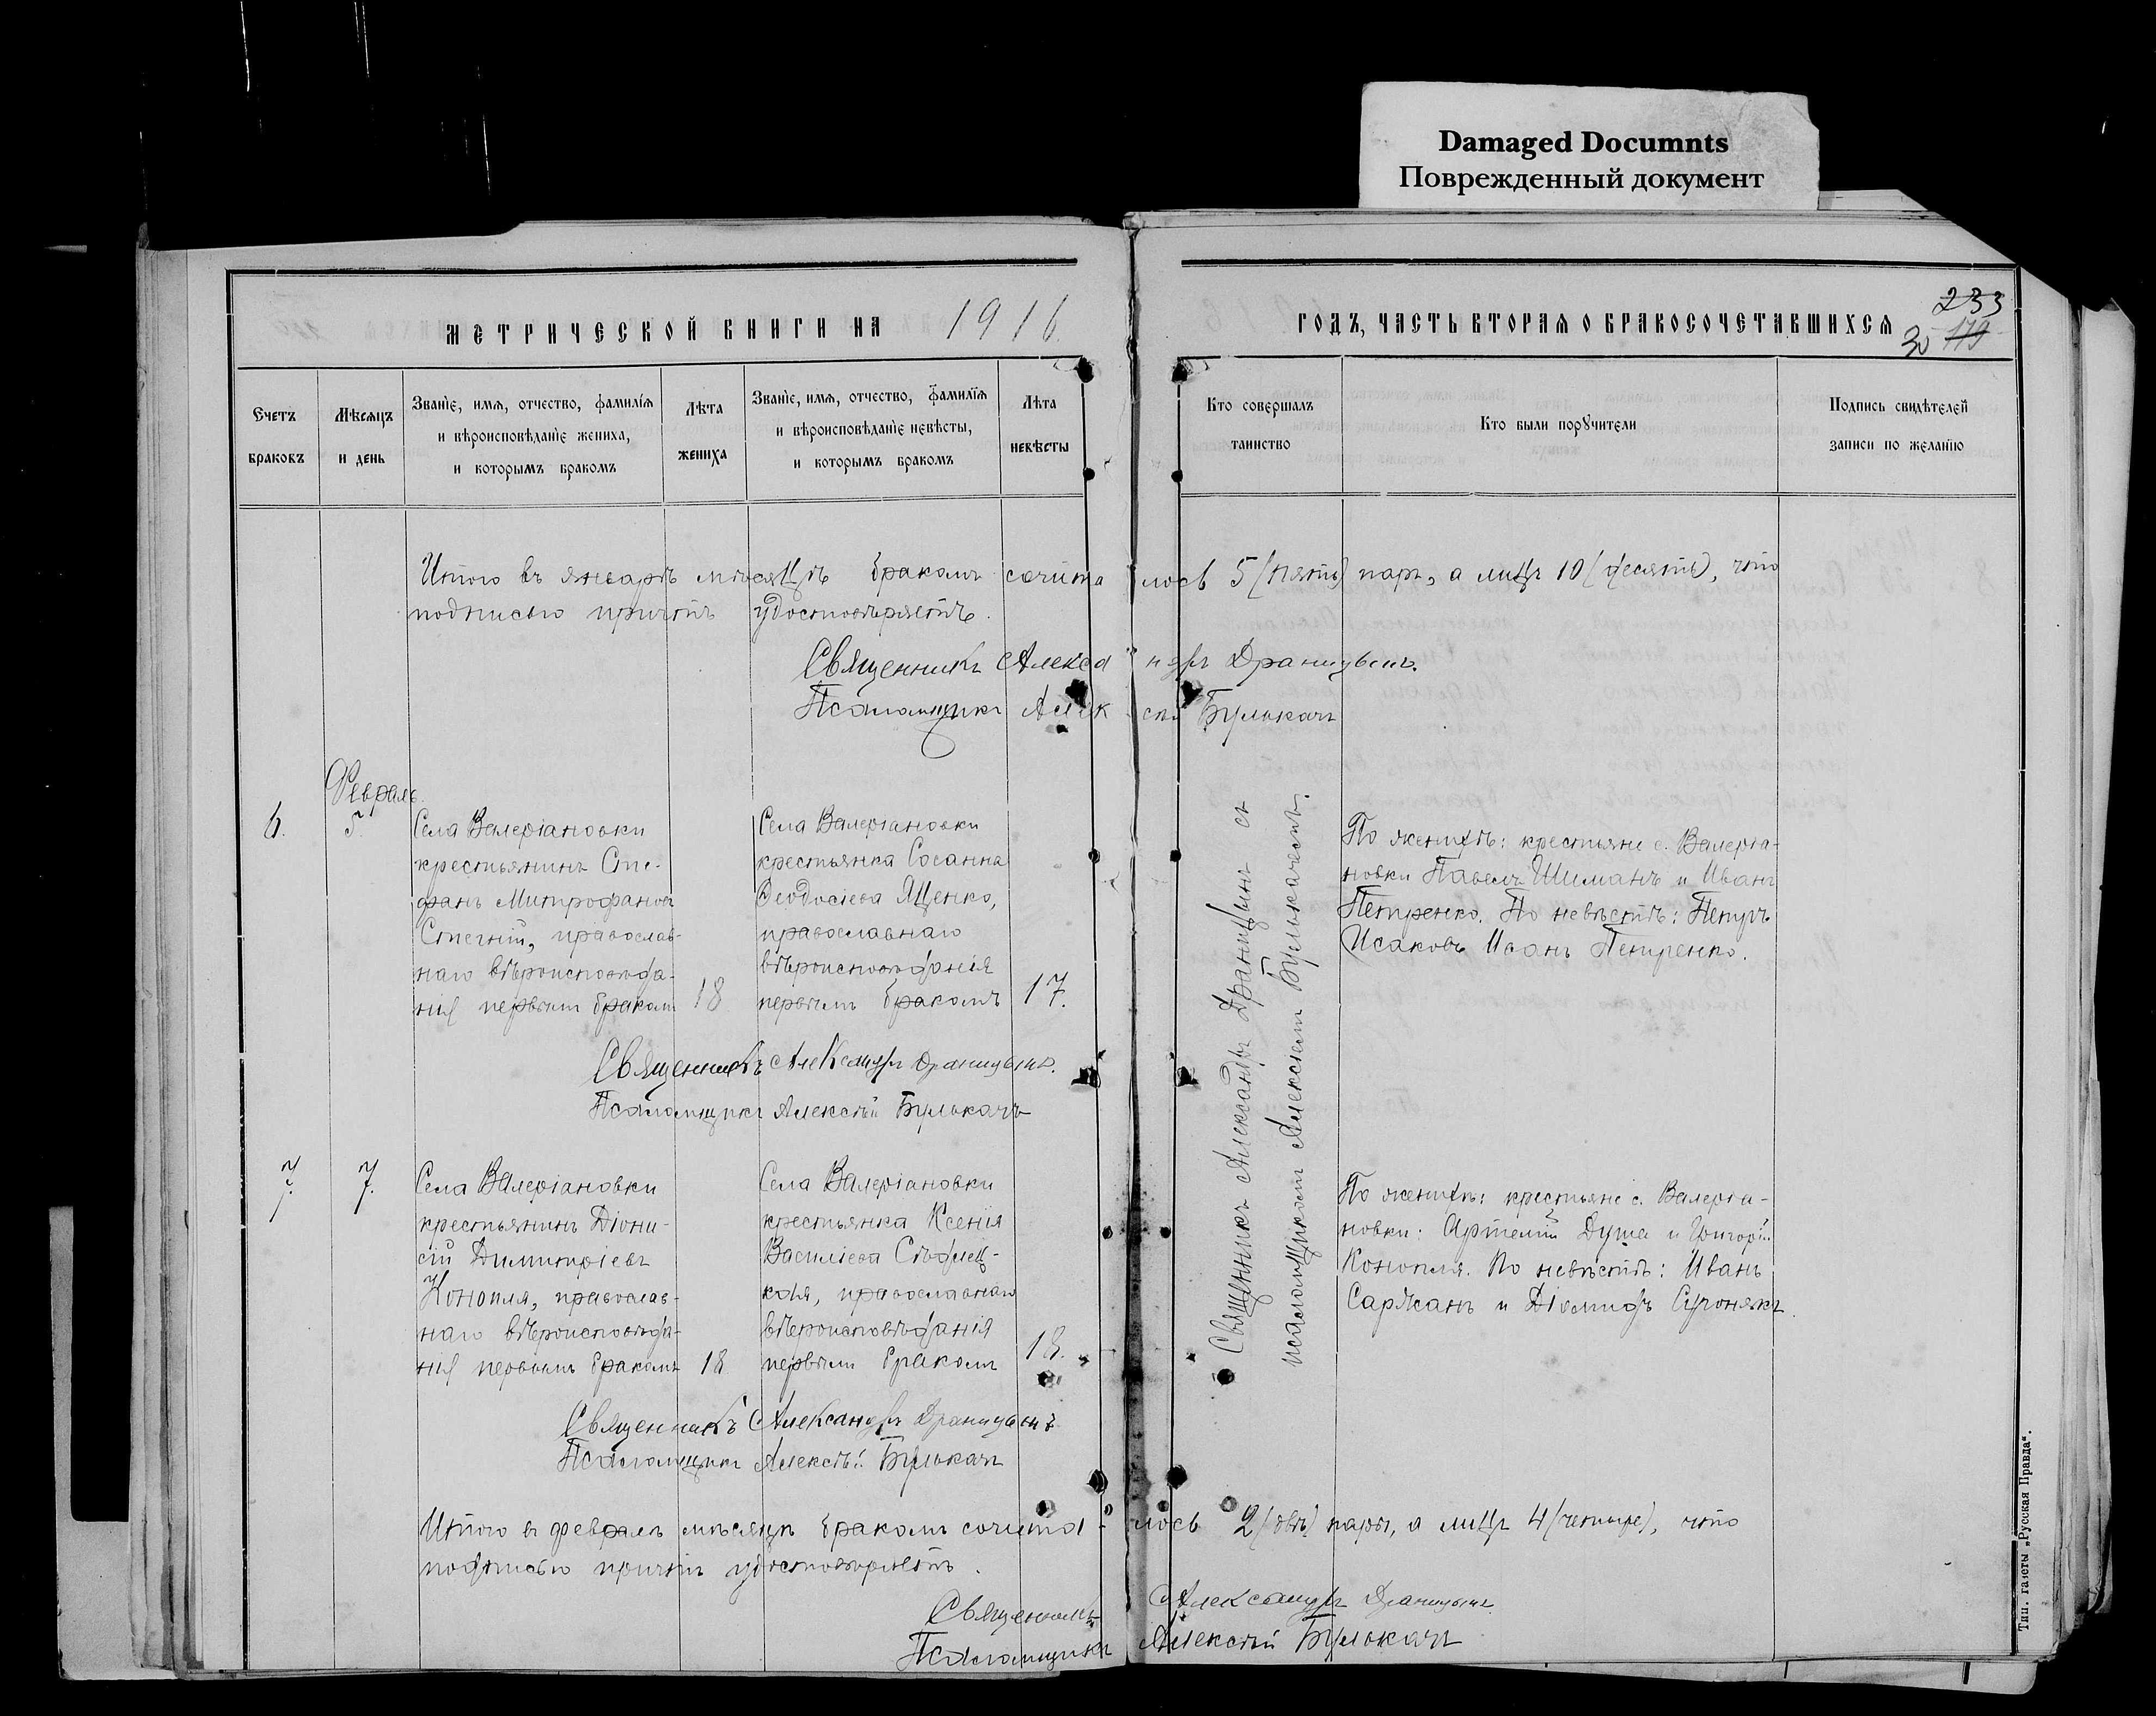 Damaged Documnts
Поврежденный документ
МЕТРИЧЕСКОЙ КНИГИ НА 1916
ГОДЪ, ЧАСТЬ ВТОРАЯ О БРАКОСОЧЕТАВШИХСЯ
233
30 179
Счетъ браковъ
Мѣсяцъ и день
Званіе, имя, отчество, фамилія
и вѣроисповѣданіе жениха,
и которымъ бракомъ
Лѣта жениха
Званіе, имя, отчество, фамилія
и вѣроисповѣданіе невѣсты,
и которымъ бракомъ
Лѣта невѣсты
Кто совершалъ таинство
Кто были поручители
Подпись свидѣтелей
записи по желанію
Итого въ январѣ мѣсяцѣ бракомъ сочита лось 5 (пять) паръ, а лицъ 10 (десять), что
подписью причтъ удостовѣряетъ.
Священникъ Александръ Драницынъ.
Псаломщикъ Алексѣй Булыкачъ
Февраль.
6.
5.
Села Валеріановки
крестьянинъ Сте-
фанъ Митрофановъ
православ-
наго вѣроисповѣда-
нія первымъ бракомъ
18
Села Валеріановки
крестьянка Сосанна
Ѳеодосіева Яценко,
православнаго
вѣроисповѣданія
первымъ бракомъ
17.
Священникъ Александръ Драницынъ съ
псаломщикомъ Алексіемъ Булыкачемъ.
По женихѣ: крестьяне с. Валеріа-
новки Павелъ Шиманъ и Иванъ
Петренко. По невѣстѣ: Петръ
Исаковъ Иванъ Петренко.
Священникъ Александръ Драницынъ.
Псаломщикъ Алексѣй Булыкачъ
7.
7.
Села Валеріановки
крестьянинъ Діони-
сій Димитріевъ
Конопля, православ-
наго вѣроисповѣда-
нія первымъ бракомъ
18
Села Валеріановки
крестьянка Ксенія
Василіева
православнаго
вѣроисповѣданія
первымъ бракомъ
18.
По женихѣ: крестьяне с. Валеріа-
новки: Артемій Душа и Григорій
Конопля. По невѣстѣ: Иванъ
Саржанъ и Діомидъ
Священникъ Александръ Драницынъ
Псаломщикъ Алексѣй Булыкачъ
Итого въ февралѣ мѣсяцѣ бракомъ сочита- лось 2 (двѣ) пары, а лицъ 4 (четыре), что
подписью причтъ удостовѣряетъ.
Священникъ Александръ Драницынъ.
Псаломщикъ Алексѣй Булыкачъ
Тип. газеты „Русская Правда“.